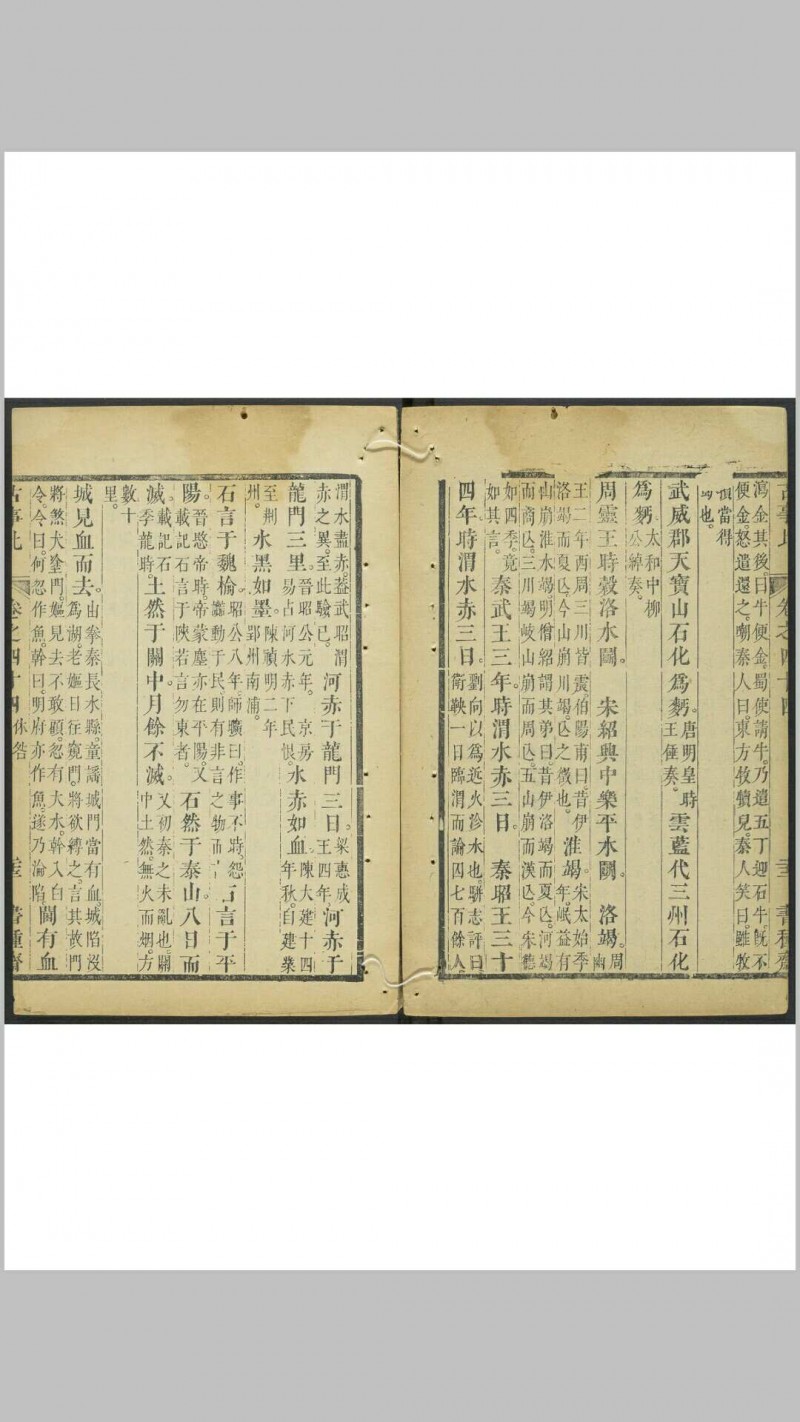 瀉金其後曰牛便金蜀使請牛乃遣五丁迎石牛旣不
便金。怒遣還之。嘲秦人曰。東方牧犢兒。秦人笑曰。雖牧
犢當得
蜀也。
武威郡天寶山石化爲麪。唐明皇時
王倕奏。
雲藍代三州石化
爲麪太和中柳
公綽奏。
周靈王時穀洛水鬭。
宋紹興中樂平水鬭。
洛竭。周
幽
王二年西周三川皆震伯陽甫曰昔伊
洛竭而夏亾今山崩川竭亾之徵也。
淮竭。宋太始季
年。岷益有
山崩淮水竭。明僧紹謂其弟曰昔伊洛竭而夏亾。河竭
而商亾。三川竭岐山崩而周亾。五山崩而漢亾。今宋德
如四季。竟
如其言。
秦武王三年時渭水赤三日。
秦昭王三十
四年時渭水赤三日。劉向以爲近火沴水也。騈志評曰
衛鞅一日臨渭而論囚七百餘人
渭水盡赤。葢武昭渭
赤之異。至此驗已。
河赤于龍門三日。梁惠成
王四年
河赤于
龍門三里。晉昭公元年。京房
易占河水赤下民恨。
水赤如血。陳大建十四
年秋。自建業
至荆
州。
水黑如墨。陳禎明二年
郢州南浦。
石言于魏榆。昭公八年。師曠曰。作事不時。怨
讟動于民則有非言之物而
石言于平
陽。晉愍帝時。帝蒙塵亦在平陽。又
載記石言于陝若言勿東者。
石然于泰山八日而
滅。載記石
季龍時。
土然于關中月餘不滅。又初秦之未亂也。關
中土然。無火而烟。方
數十
里。
城見血而去。由拳秦長水縣。童謡城門當有血。城陷沒
爲湖。老嫗日往窺門。將欲縛之。言其故門
將煞犬塗門。嫗見去不敢顧。忽有大水。幹入白
令令曰。何忽作魚。幹曰。明府亦作魚。遂乃淪陷
闗有血
古事比
卷之四十四
休咎
書種齋